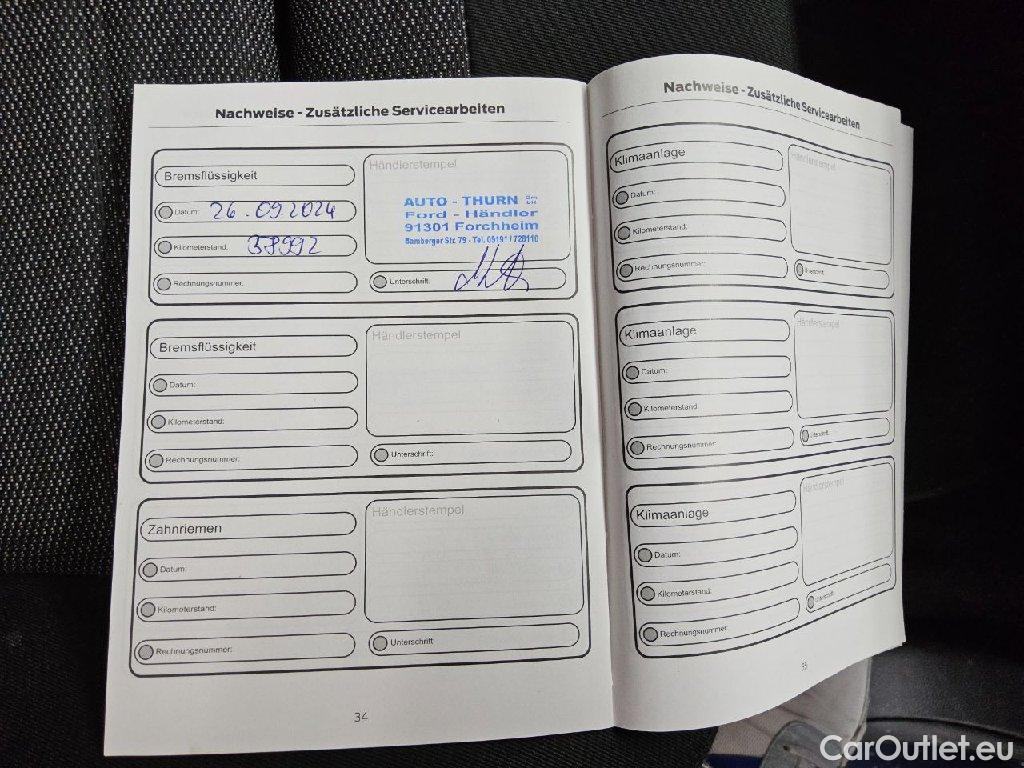 Nachweise - Zusätzliche Servicearbeiten
Bremsflüssigkeit
Datum: 26.09.2024
Kilometerstand:
Rechnungsnummer:
Händlerstempel
AUTO - THURN
Ford - Händler
91301 Forchheim
Bamberger Str. 79 - Tel. 09191 / 728110
Unterschrift:
Bremsflüssigkeit
Datum:
Kilometerstand:
Rechnungsnummer:
Händlerstempel
Unterschrift:
Zahnriemen
Datum:
Kilometerstand:
Rechnungsnummer:
Händlerstempel
Unterschrift:
34
Nachweise - Zusätzliche Servicearbeiten
Klimaanlage
Datum:
Kilometerstand:
Rechnungsnummer:
Händlerstempel
Unterschrift:
Klimaanlage
Datum:
Kilometerstand:
Rechnungsnummer:
Händlerstempel
Unterschrift:
Klimaanlage
Datum:
Kilometerstand:
Rechnungsnummer:
Händlerstempel
Unterschrift:
35
CarOutlet.eu